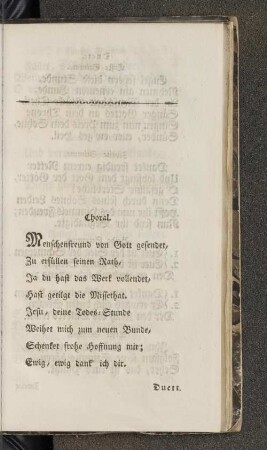 Choral.
Menschenfreund von Gott gesendet,
Zu erfüllen seinen Rath,
Ja du hast das Werk vollendet,
Hast getilgt die Missethat.
Jesu, deine Todes-Stunde
Weihet mich zum neuen Bunde,
Schenket frohe Hoffnung mir;
Ewig, ewig dank' ich dir.
Duett.